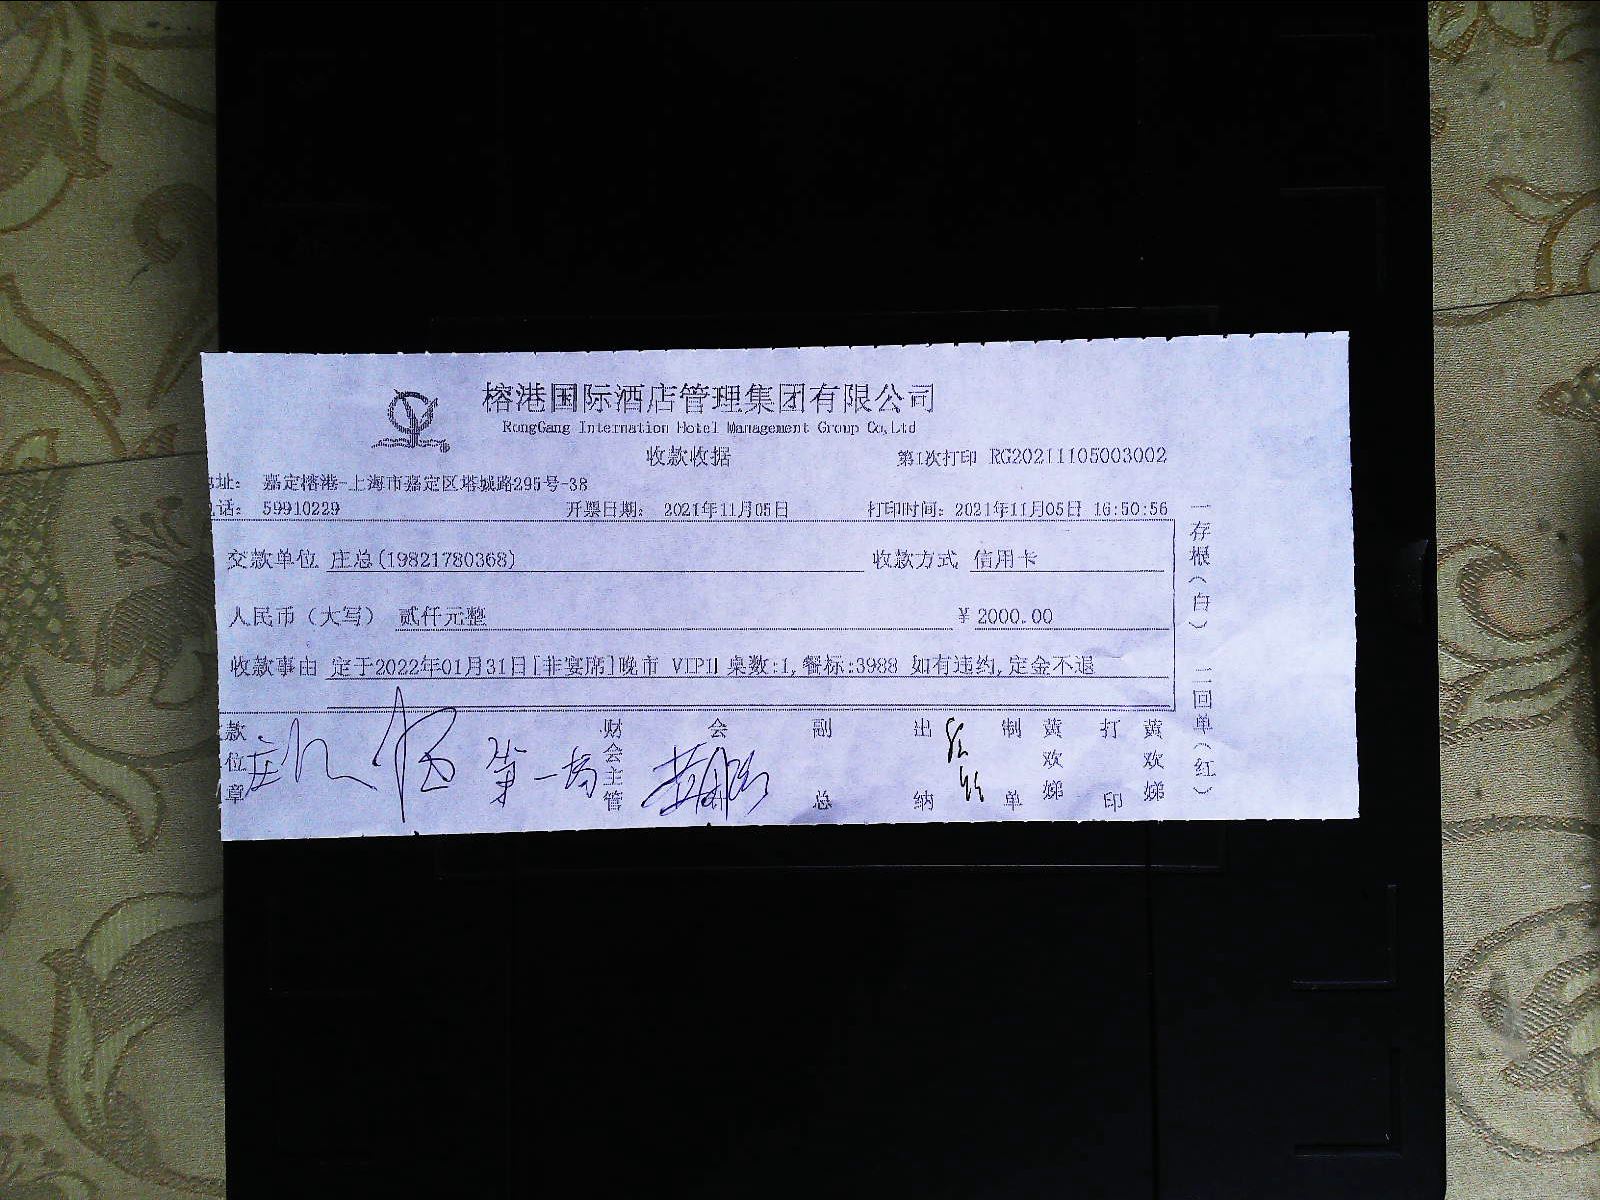 榕港国际酒店管理集团有限公司
RongGang Internation Hotel Management Group Co,Ltd
收款收据
第1次打印 RG20211105003002
址： 嘉定榕港-上海市嘉定区塔城路295号-38
话： 59910229 开票日期： 2021年11月05日 打印时间：2021年11月05日 16:50:56
交款单位 庄总(19821780368) 收款方式 信用卡
人民币（大写） 贰仟元整 ¥ 2000.00
收款事由 定于2022年01月31日[非宴席]晚市 VIP11 桌数:1,餐标:3988 如有违约,定金不退
款位章 第一场 财会主管 会 副总 出纳 制单 黄欢娣 打印 黄欢娣
一存根（白） 二回单（红）